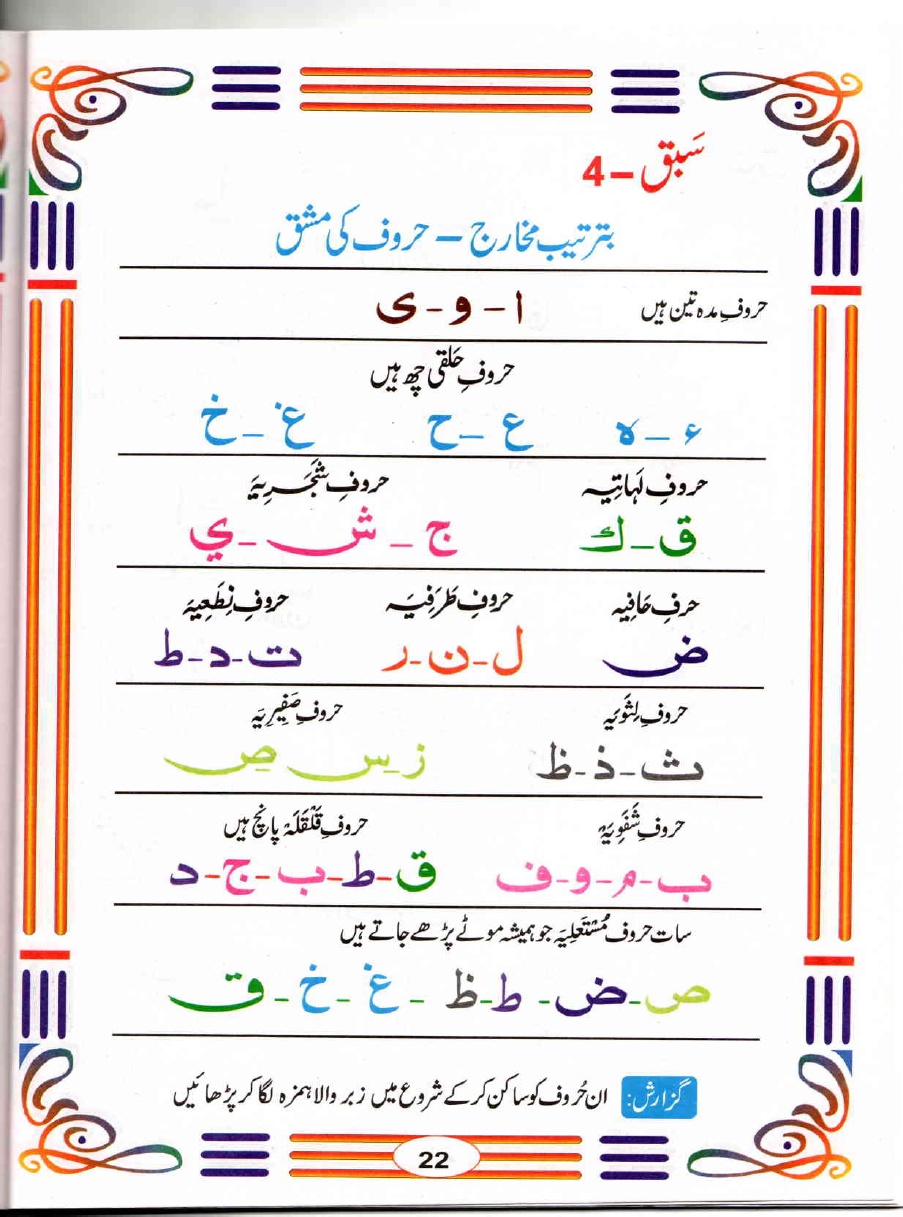 سَبق – 4
بترتیب مخارج – حروف کی مشق
حروفِ مدہ تین ہیں ا - و - ی
حروفِ حَلقی چھ ہیں
ء – ہ ع – ح غ – خ
حروفِ لہاتِیہ حروفِ شَجَرِیَہ
ق – ك ج – ش – ي
حرفِ حَافِیہ حروفِ طَرَفِیَہ حروفِ نِطَعِیَہ
ض ل - ن - ر ت - د - ط
حروفِ لِثَوِیَہ حروفِ صَفِیرِیَہ
ث - ذ - ظ ز - س - ص
حروفِ شَفَوِیَہ حروفِ قَلْقَلَہ پانچ ہیں
ب - م - و - ف ق - ط - ب - ج - د
سات حروف مُسْتَعلِیَہ جو ہمیشہ موٹے پڑھے جاتے ہیں
ص - ض - ط - ظ - غ - خ - ق
گزارش: ان حُروف کو ساکن کر کے شروع میں زبر والا ہمزہ لگا کر پڑھائیں
22